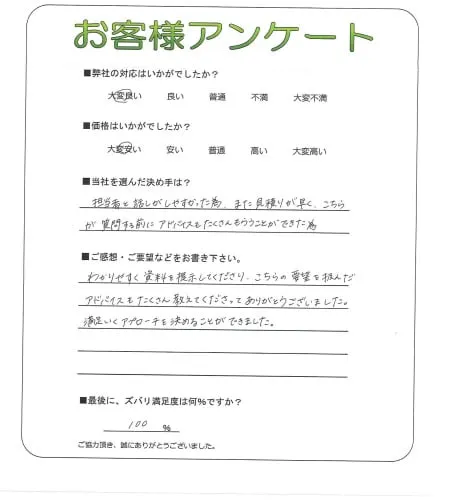 お客様アンケート
■弊社の対応はいかがでしたか？
大変良い 良い 普通 不満 大変不満
■価格はいかがでしたか？
大変安い 安い 普通 高い 大変高い
■当社を選んだ決め手は？
担当者と話しがしやすかった為、また見積りが早く、こちら
が質問する前にアドバイスもたくさんもらうことができた為
■ご感想・ご要望などをお書き下さい。
わかりやすく資料を提示してくださり、こちらの要望を汲んだ
アドバイスもたくさん教えてくださってありがとうございました。
満足いくアプローチを決めることができました。
■最後に、ズバリ満足度は何％ですか？
100 %
ご協力頂き、誠にありがとうございました。